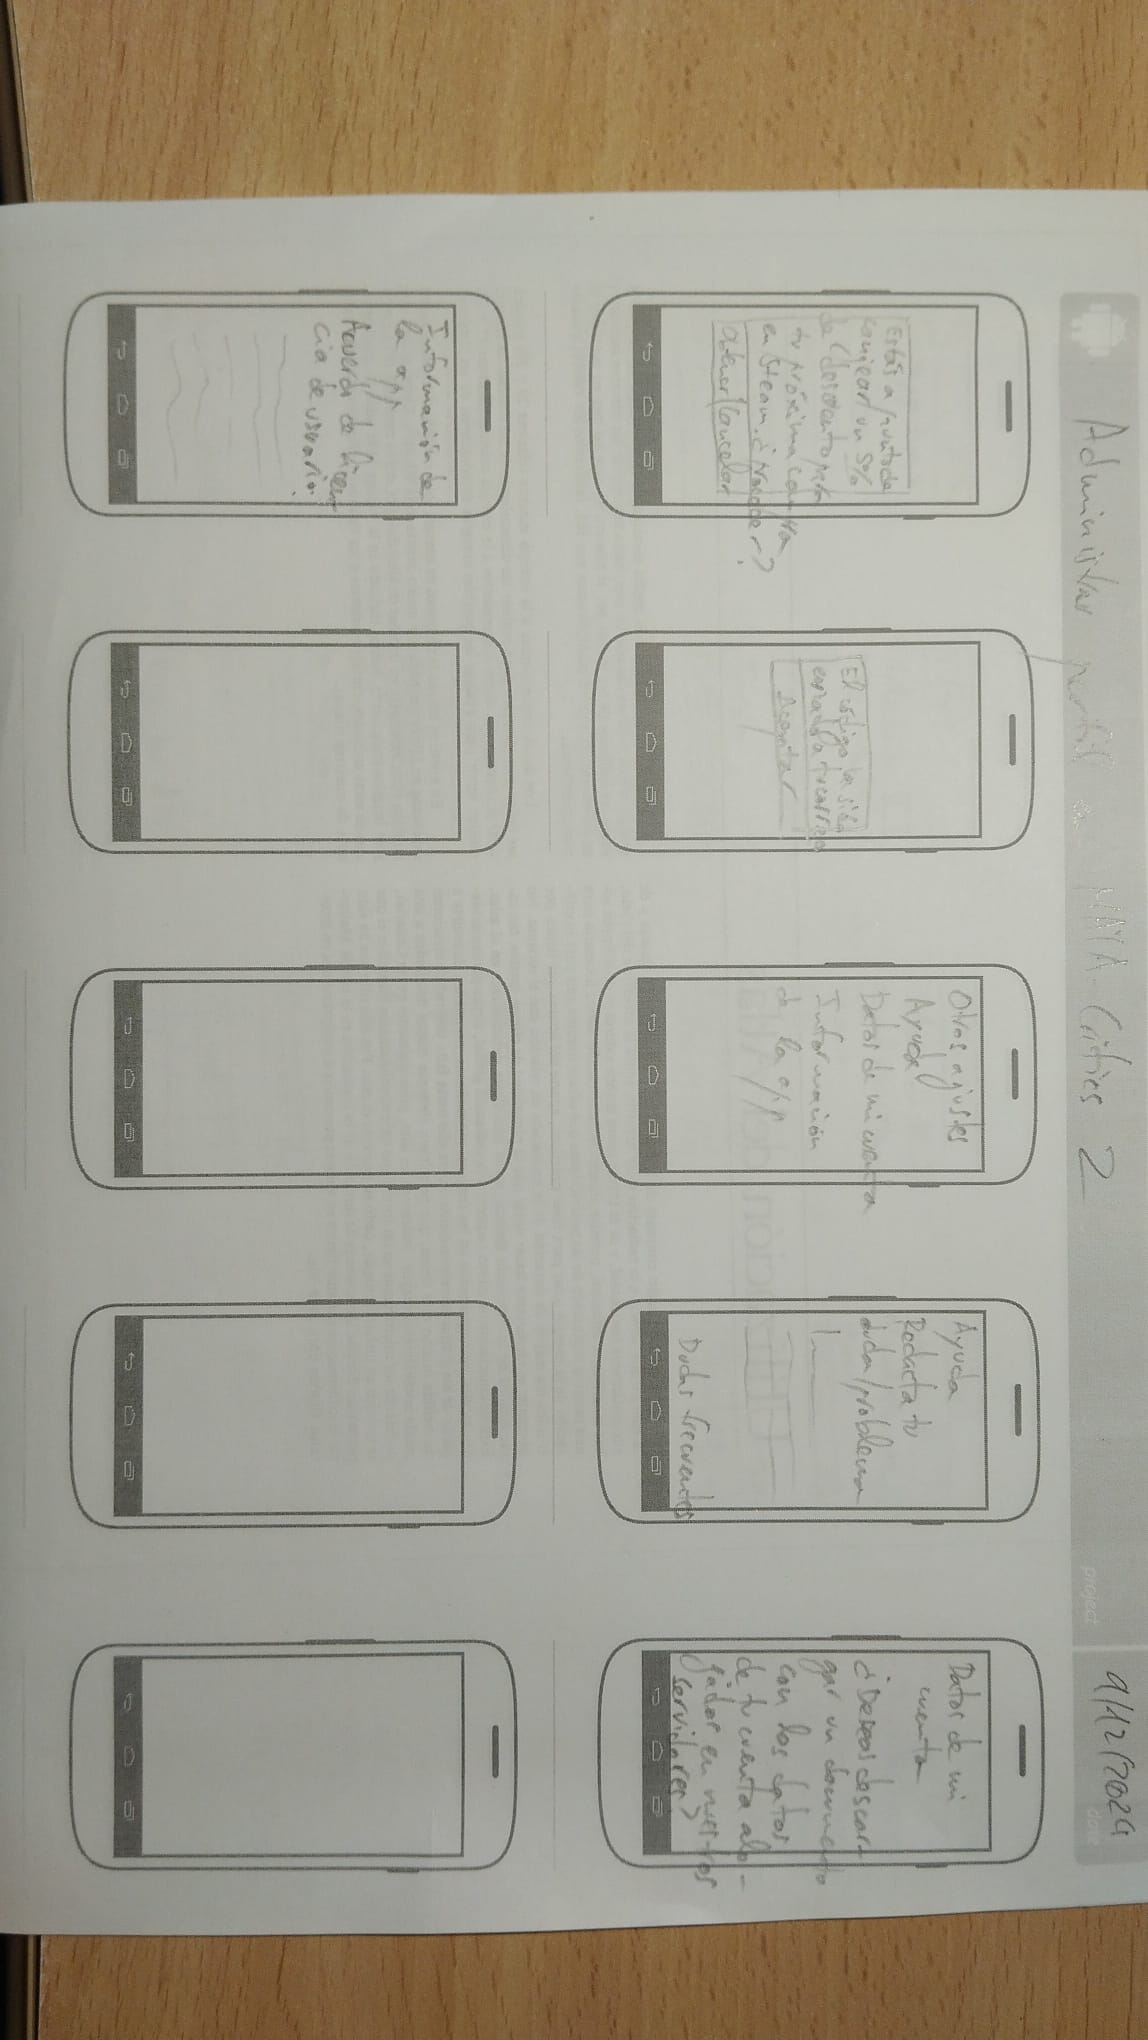 Administrar perfil en MAYA-Critics 2
project
9/12/2024
date
Estás a punto de
canjear un 5%
de descuento para
tu próxima compra
en Steam. ¿proceder?
Obtener/Cancelar
El código ha sido
enviado a tu correo
Aceptar
Otros ajustes
Ayuda
Datos de mi cuenta
Información
de la app
Ayuda
Redacta tu
duda/problema
Dudas frecuentes
Datos de mi
cuenta
¿Deseas descar-
gar un documento
con los datos
de tu cuenta alo-
jados en nuestros
servidores?
Información de
la app
Acuerdo de licen-
cia de usuario: